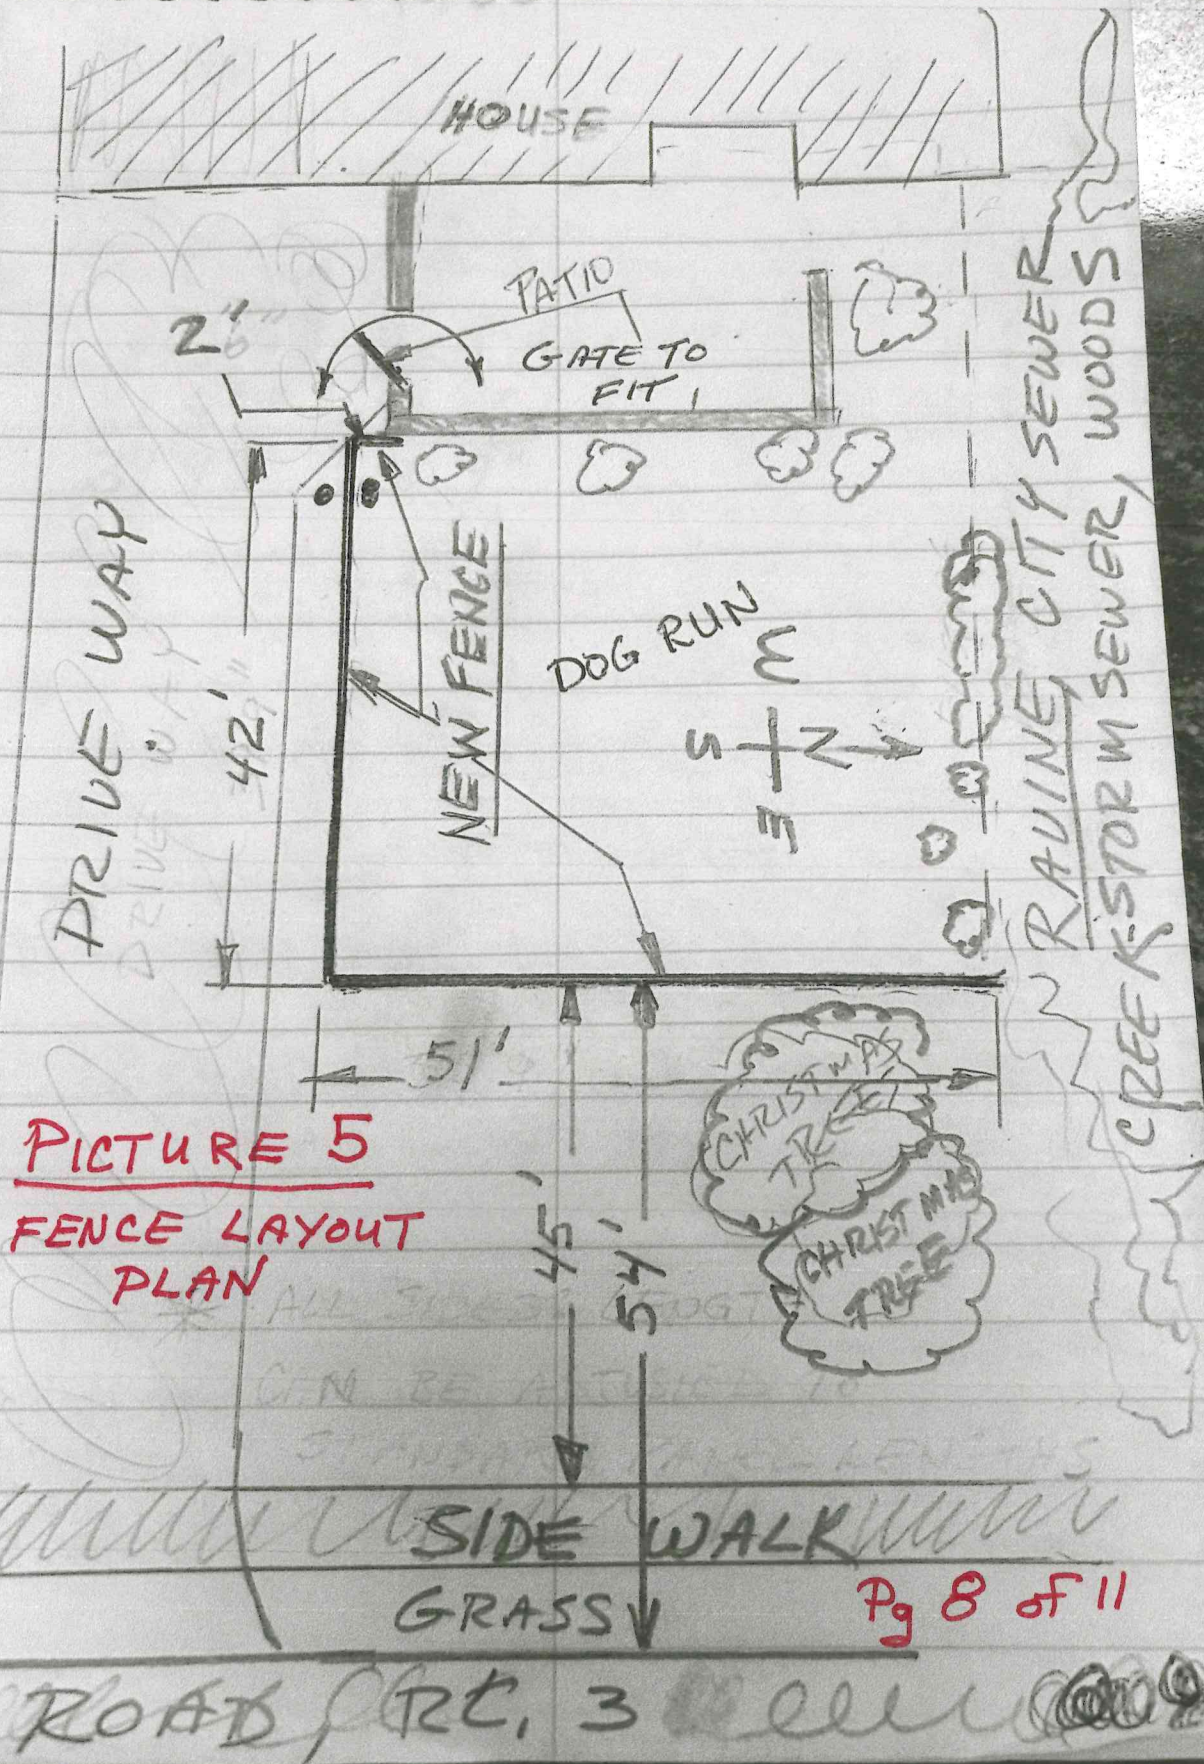 HOUSE
PATIO
2'
GATE TO
FIT
DRIVE WAY
42'
NEW FENCE
DOG RUN
W
S
N
E
RAVINE, CITY SEWER
CREEK-STORM SEWER, WOODS
51'
CHRISTMAS
TREE
CHRISTMAS
TREE
45'
54'
PICTURE 5
FENCE LAYOUT
PLAN
SIDE WALK
GRASS
Pg 8 of 11
ROAD, RT. 3